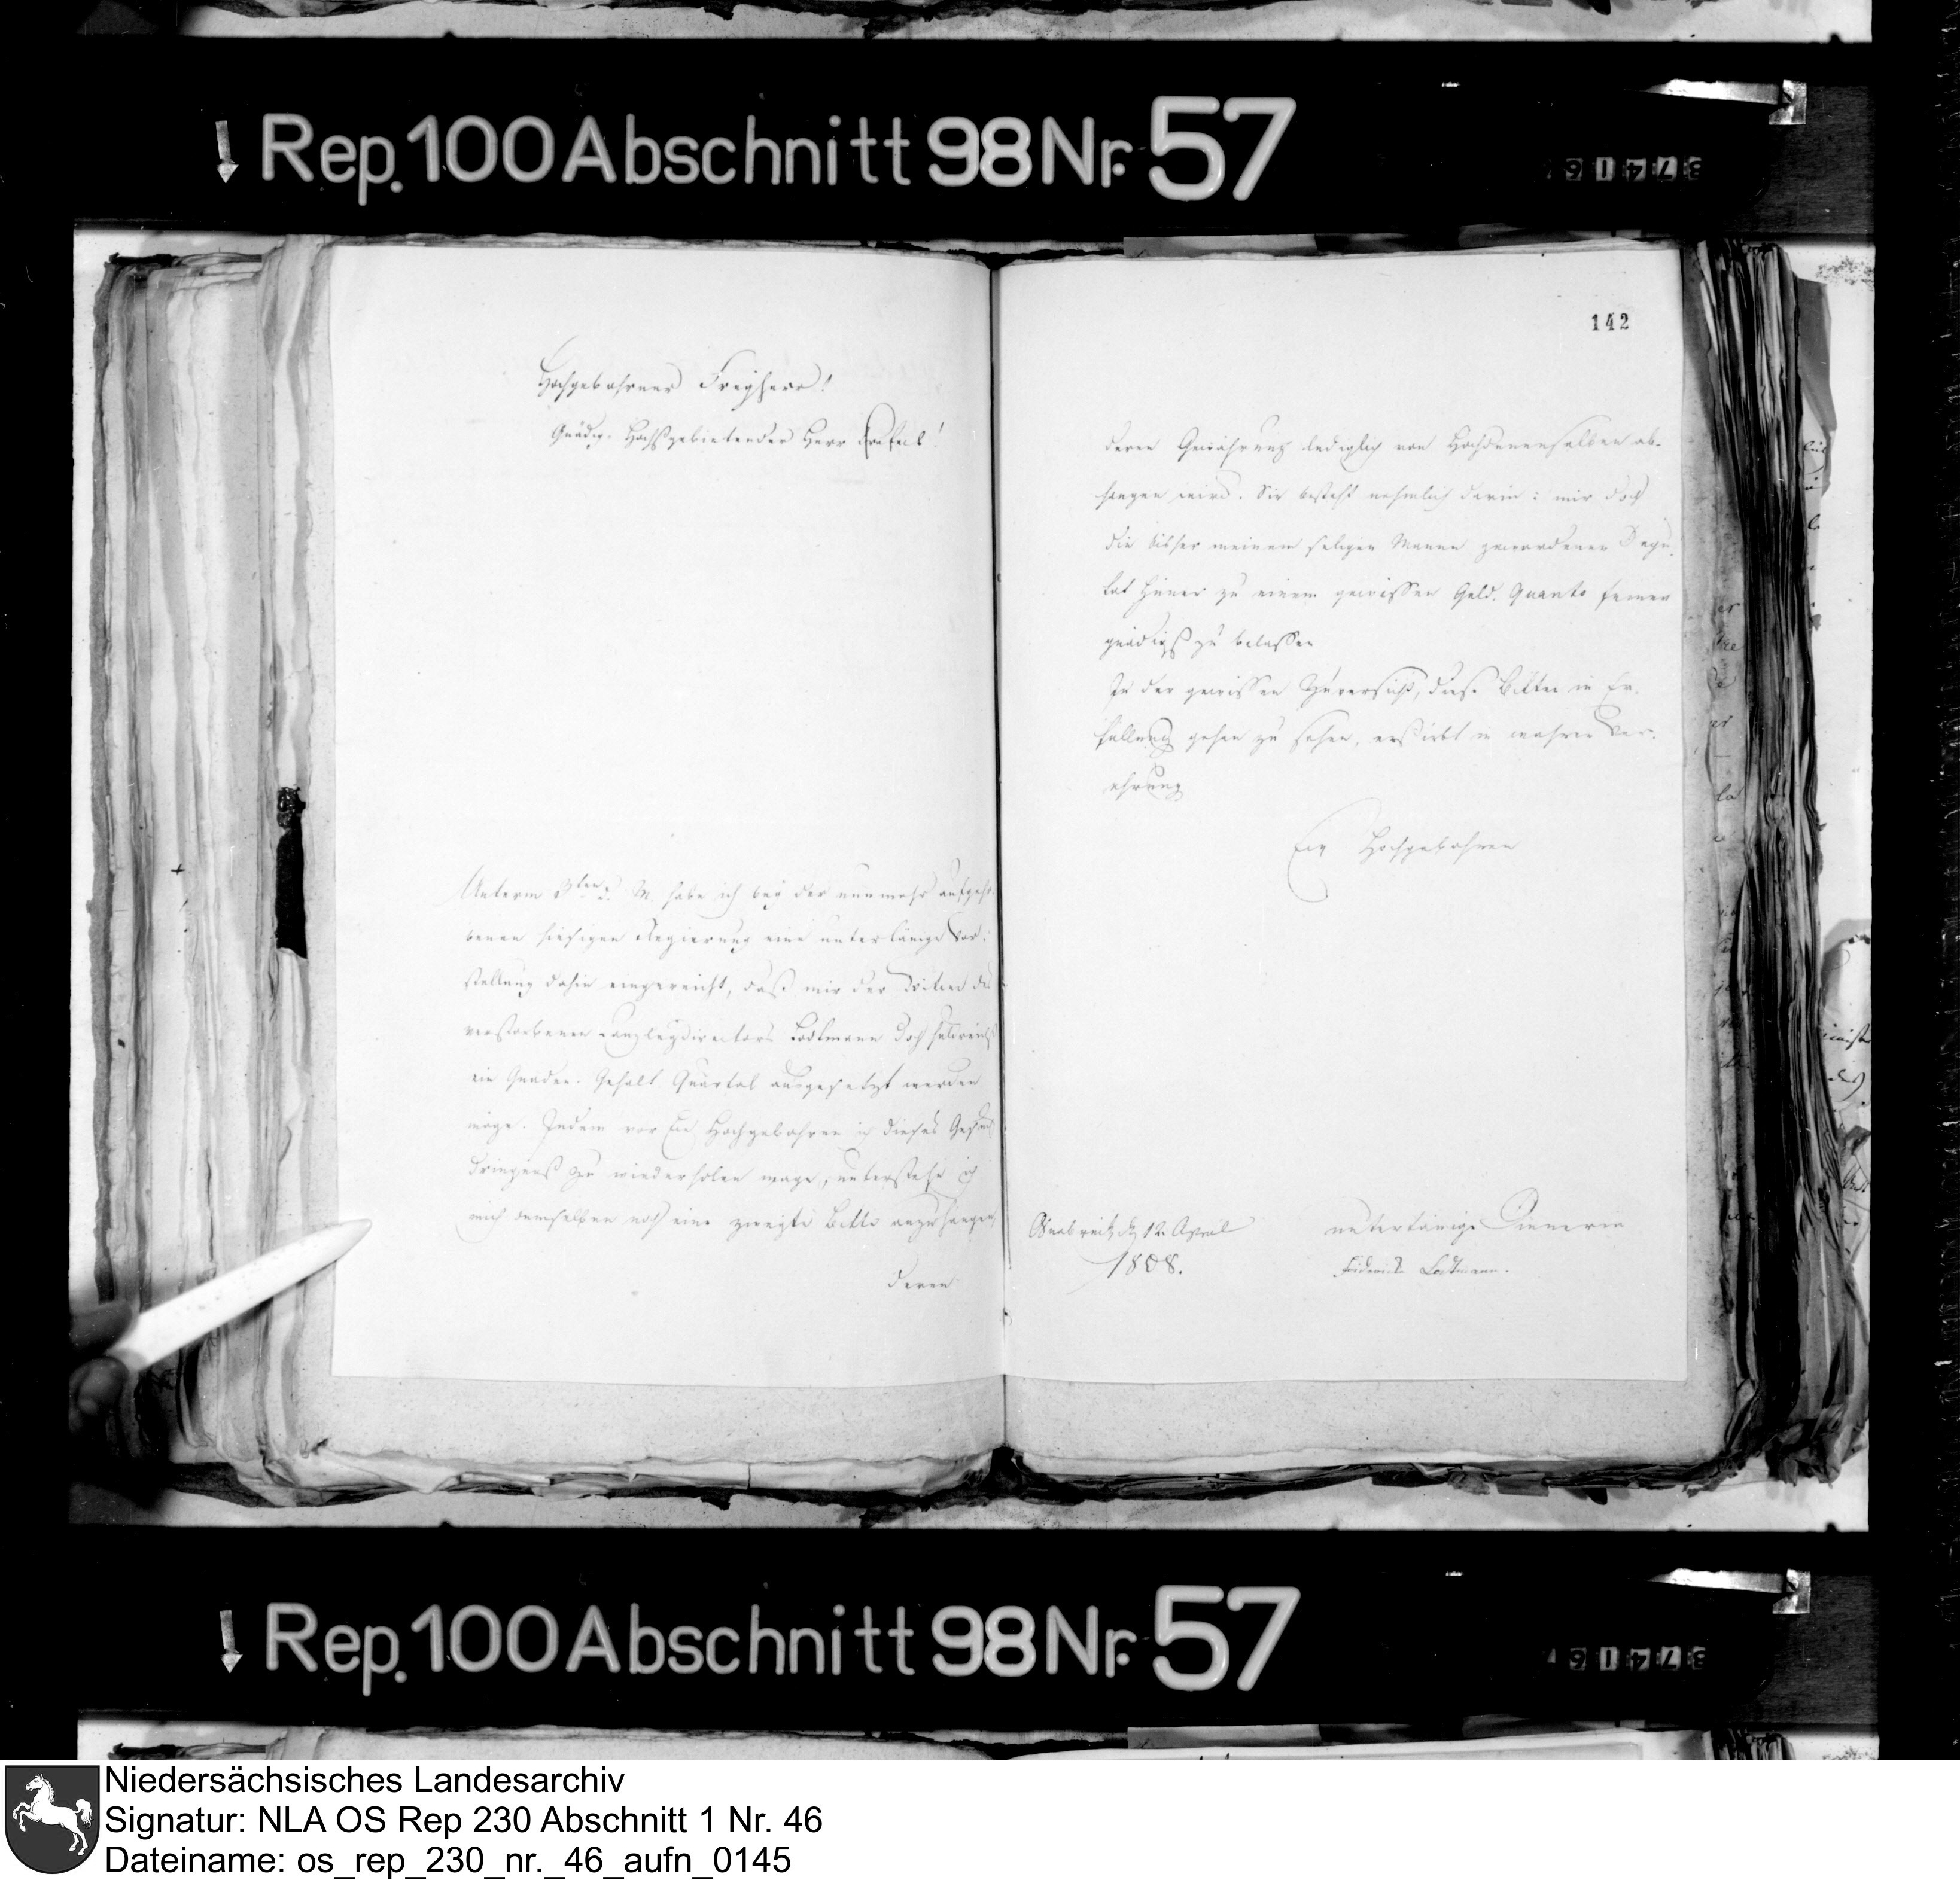 Rep. 100 Abschnitt 98 Nr. 57
37416
142
Hochgebohrner Freyherr!
Gnädig. Hochstgebietender Herr Präfect!
Unterm 3ten d. M. habe ich bey der nunmehr aufgeho-
benen hiesigen Regierung eine untertänige Vor-
stellung dahin eingereicht, daß mir der Witwe des
verstorbenen Canzleydirectors Lodtmann doch huldreichst
ein Gnaden-Gehalt Quartal ausgesetzt werden
möge. Indem vor Ew Hochgebohren ich dieses Gesuch
dringenst zu wiederholen wage, unterstehe ich
mich demselben noch eine zweyte Bitte anzuhangen,
deren
deren Gewährung lediglich von Hochdenenselben ab-
hangen wird. Sie besteht nehmlich darin: mir doch
die bisher meinem seligen Manne gewordenen Depu-
tat Hüner zu einem gewissen Geld-Quanto ferner
gnädigst zu belassen
In der gewissen Zuversicht, diese Bitten in Er-
füllung gehen zu sehen, erstirbt in wahrer Ver-
ehrung
Ew Hochgebohren
Osnabrück d 12 April
1808.
untertänige Dienerin
Friderica Lodtmann.
Rep. 100 Abschnitt 98 Nr. 57
37416
Niedersächsisches Landesarchiv
Signatur: NLA OS Rep 230 Abschnitt 1 Nr. 46
Dateiname: os_rep_230_nr._46_aufn_0145